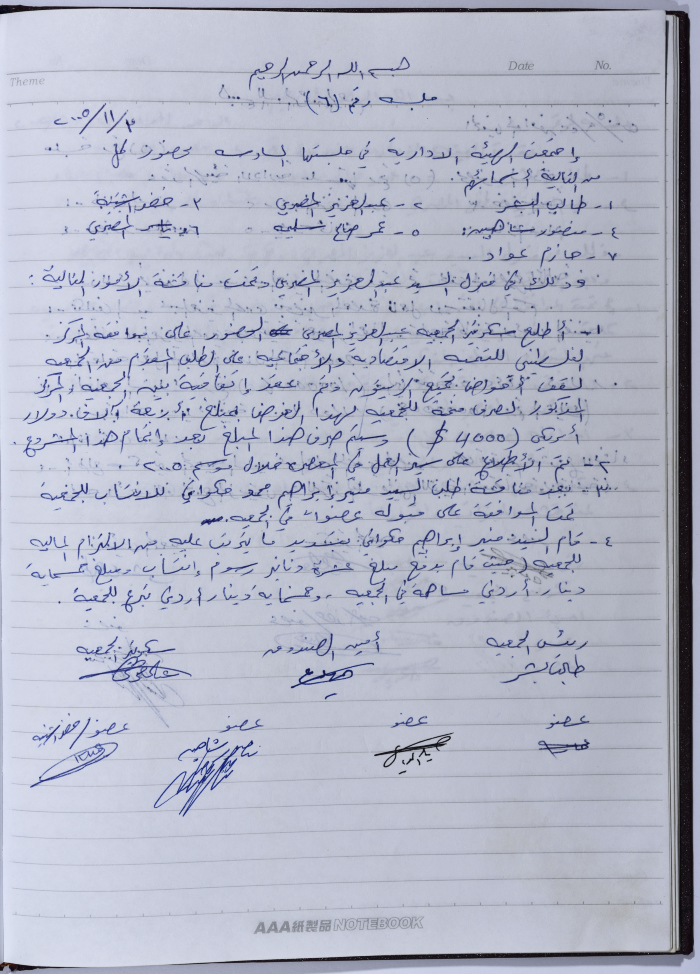 Theme
Date
No.
بسم الله الرحمن الرحيم
جلسه رقم (٦)
٢٠٠٥/١١/٣
إجتمعت الهيئة الادارية في جلستها السادسه بحضور كل
من التالية أسمائهم
١- طالب البشر ٢- عبد العزيز المصري ٣- خضر
٤- منصور شاهين ٥- عمر صالح سليمه ٦- ياسر المصري
٧- حازم عواد.
وذلك في منزل السيد عبد العزيز المصري وتمت مناقشة الأمور التالية:
١- أطلع سكرتير الجمعيه عبد العزيز المصري الحضور على موافقة المركز
الفلسطيني للتنميه الاقتصادية والأجتماعية على الطلب المقدم من الجمعيه
لسقف أحواض تجميع الزيتون وتم عقد إتفاقية بين الجمعيه والمركز
المذكور لصرف منحة للجمعية لهذا الغرض بمبلغ أربعة آلاف دولار
أمريكي (4000 $) وسيتم صرف هذا المبلغ بعد إتمام هذا المشروع.
٢- تم الأطلاع على سير العمل في المعصره خلال موسم ٢٠٠٥.
٣- بعد مناقشة طلب السيد منير إبراهيم حمد للانتساب للجمعية
تمت الموافقة على قبوله عضوا" في الجمعيه.
٤- قام السيد منير إبراهيم بتسديد ما يترتب عليه من الالتزام الماليه
للجمعية حيث قام بدفع مبلغ عشرة دنانير رسوم إنتساب ومبلغ خمسماية
دينار أردني مساهمه في الجمعيه وخمسماية دينار أردني تبرع للجمعية.
رئيس الجمعيه أمين الصندوق سكرتير الجمعيه
طالب البشر
عضو عضو عضو عضو / خضر
شاهين
AAA紙製品 NOTEBOOK